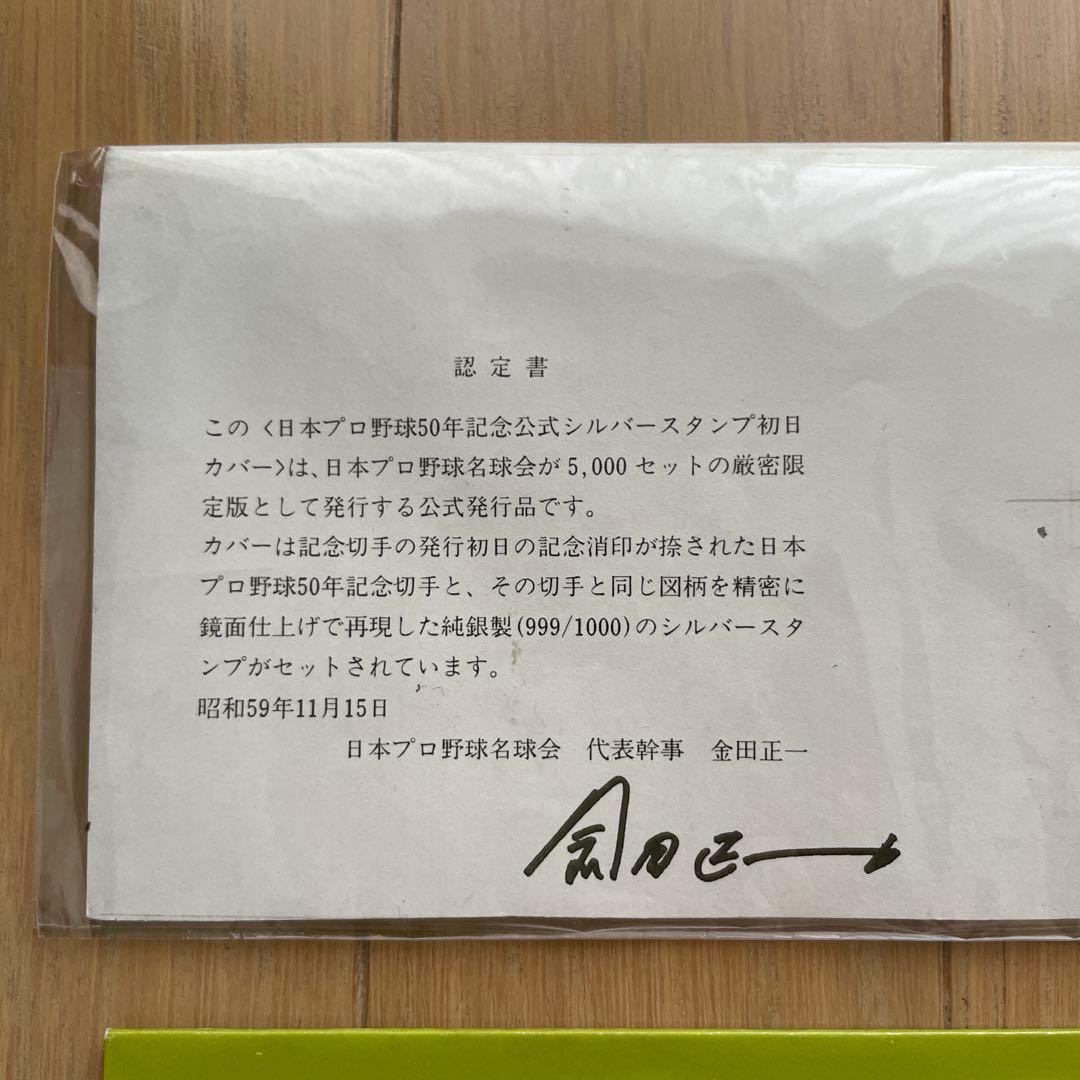 認定書
この〈日本プロ野球50年記念公式シルバースタンプ初日
カバー〉は、日本プロ野球名球会が5,000セットの厳密限
定版として発行する公式発行品です。
カバーは記念切手の発行初日の記念消印が捺された日本
プロ野球50年記念切手と、その切手と同じ図柄を精密に
鏡面仕上げで再現した純銀製(999/1000)のシルバースタ
ンプがセットされています。
昭和59年11月15日
日本プロ野球名球会 代表幹事 金田正一
金田正一